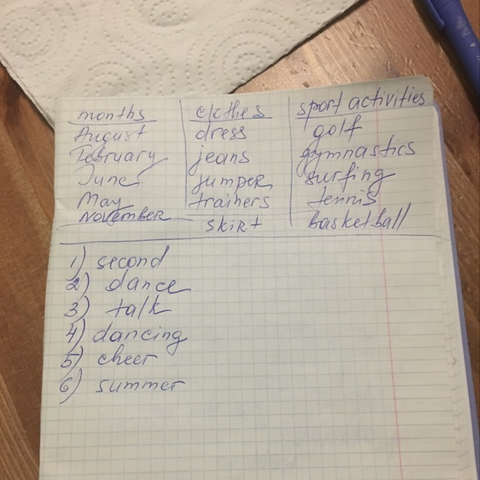 months clothes sport activities
August dress golf
February jeans gymnastics
June jumper surfing
May trainers tennis
November skirt basketball
1) second
2) dance
3) talk
4) dancing
5) cheer
6) summer